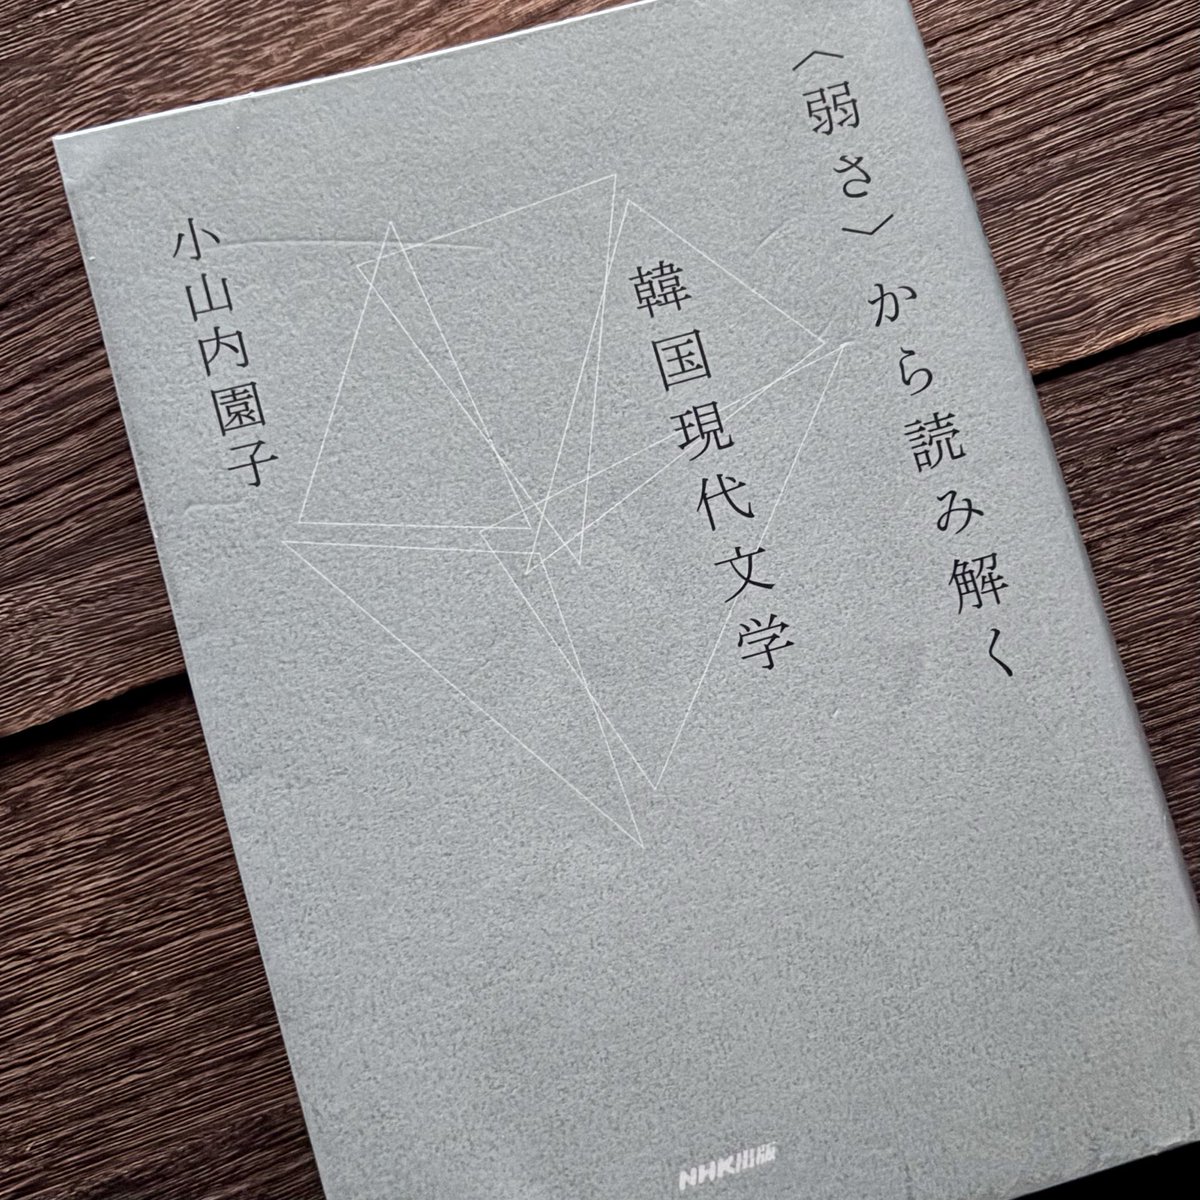 〈弱さ〉から読み解く
韓国現代文学
小山内園子
NHK出版